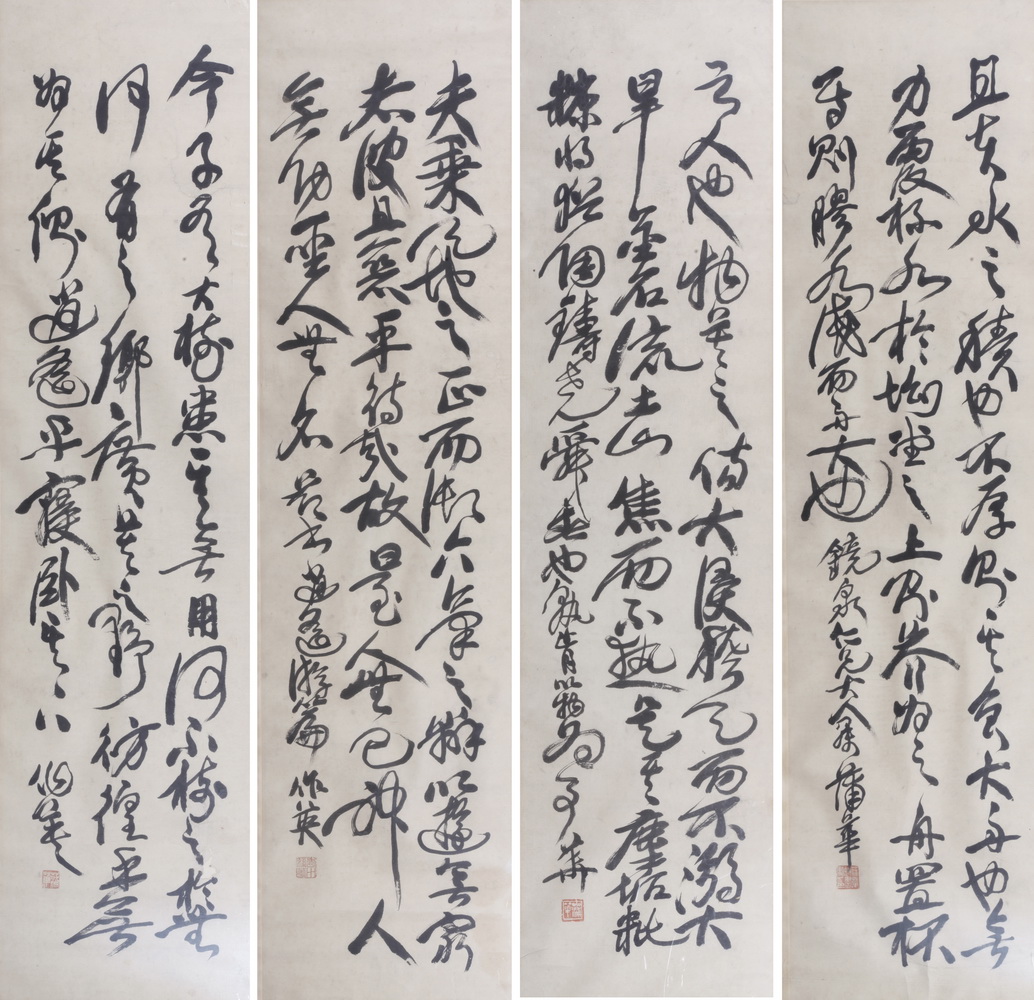 且夫水之積也不厚則其負大舟也無
力覆杯水於坳堂之上則芥為之舟置杯
焉則膠水淺而舟大也 鏡泉仁兄大人屬 蒲華
之人也物莫之傷大浸稽天而不溺大
旱金石流土山焦而不熱是其塵垢粃
糠將猶陶鑄堯舜者也孰肯以物為事 華
夫乘天地之正而御六氣之辯以遊無窮
者彼且惡乎待哉故曰至人無己神人
無功聖人無名 節書逍遙游篇 作英
今子有大樹患其無用何不樹之於無
何有之鄉廣莫之野彷徨乎無
為其側逍遙乎寢卧其下 作英